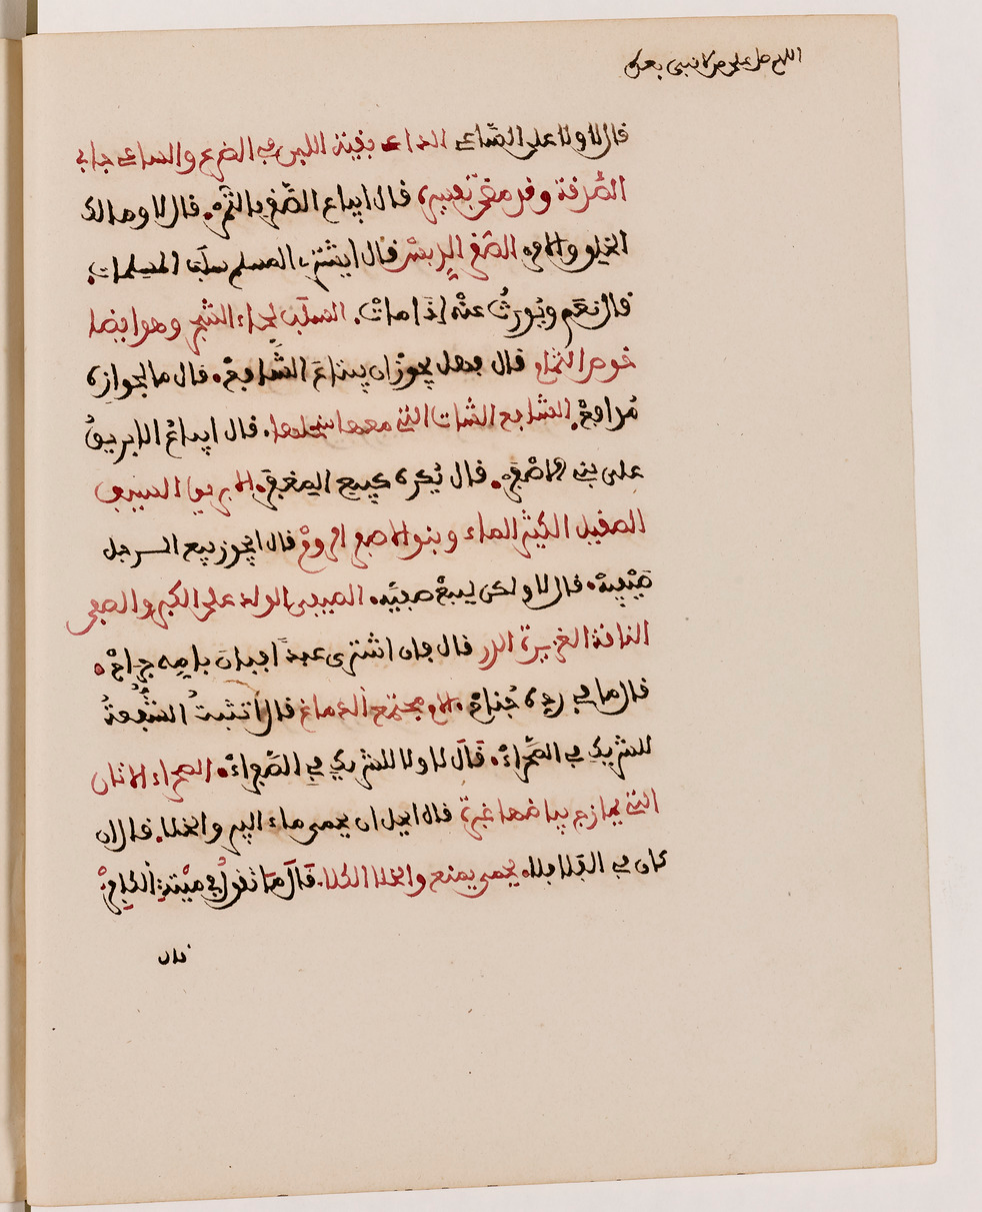 اللهم صل على من لا نبي بعده
قال لا ولا على الساعي الداعي بقية اللبن في الضرع والساعي جابي
الصدقة وقد مضى تفسيره قال ايباع الصقر بالتمر. قال لا ومالك
الخلق والامر الصقر الدبس قال ايشتري المسلم سلب المسلمات.
قال نعم ويورث عنه إذا مات. السلب لحاء الشجر وهو ايضا
خوص الثمام قال فهل يجوز ان يبتاع الشافع. قال ما لجوازه
من دافع. الشافع الشات التي معها سخلها. قال ايباع الابريق
على بني الاصفر. قال يكره كبيع المغفر. الابريق السيف
الصقيل الكثير الماء وبنو الاصفر الروم قال ايجوز بيع الرجل
صيفيه. قال لا ولكن ليبع صفيه. الصيفي الولد على الكبر والصفي
الناقة الغزيرة الدر قال فان اشترى عبدا فبان بامه جراح.
قال ما في رده جناح. الام مجتمع الدماغ قال أتثبت الشفعة
للشريك في الصحراء. قال لا ولا للشريك في الصفراء. الصحراء الاتان
التي يمازج بياضها غبرة قال ايحل ان يحمى ماء البير والخلا. قال ان
كان في الفلا فلا. يحمى يمنع والخلا الكلا. قال ما تقول في ميتة الكافر
قال